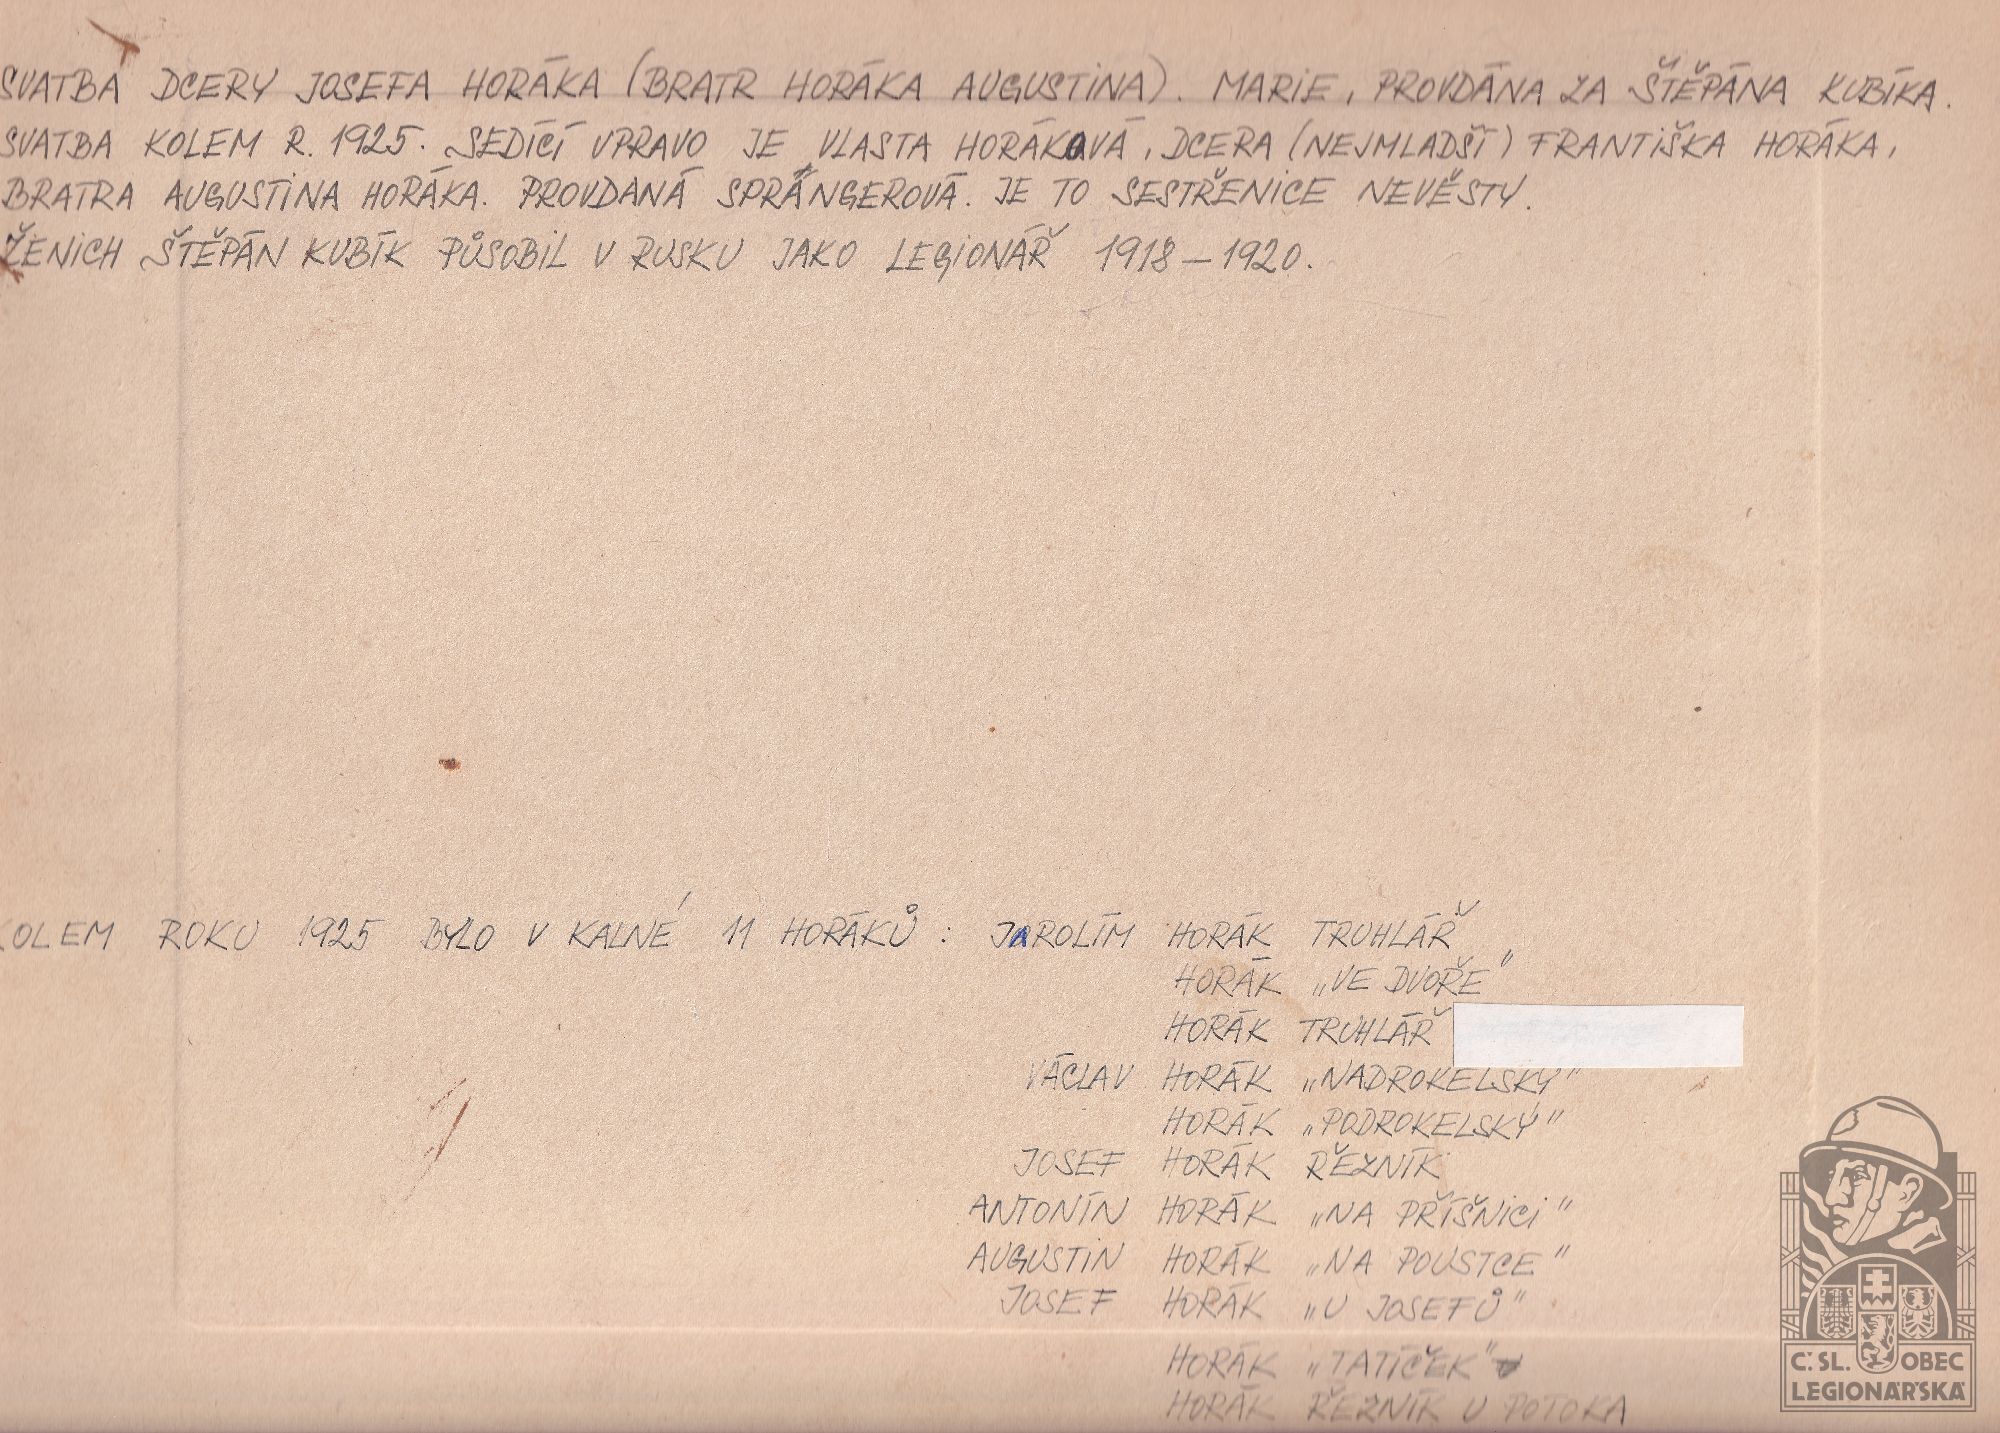 SVATBA DCERY JOSEFA HORÁKA (BRATR HORÁKA AUGUSTINA). MARIE, PROVDÁNA ZA ŠTĚPÁNA KUBÍKA.
SVATBA KOLEM R. 1925. SEDÍCÍ VPRAVO JE VLASTA HORÁKOVÁ, DCERA (NEJMLADŠÍ) FRANTIŠKA HORÁKA,
BRATRA AUGUSTINA HORÁKA. PROVDANÁ SPRÄNGEROVÁ. JE TO SESTŘENICE NEVĚSTY.
ŽENICH ŠTĚPÁN KUBÍK PŮSOBIL V RUSKU JAKO LEGIONÁŘ 1918 – 1920.
KOLEM ROKU 1925 BYLO V KALNÉ 11 HORÁKŮ : JAROLÍM HORÁK TRUHLÁŘ
HORÁK „VE DVOŘE"
HORÁK TRUHLÁŘ
VÁCLAV HORÁK „NADROKELSKÝ"
HORÁK „PODROKELSKÝ"
JOSEF HORÁK ŘEZNÍK
ANTONÍN HORÁK „NA PŘÍŠNICI"
AUGUSTIN HORÁK „NA POUSTCE"
JOSEF HORÁK „U JOSEFŮ"
HORÁK „TATÍČEK"
HORÁK ŘEZNÍK U POTOKA
Č. SL. OBEC
LEGIONÁŘSKÁ